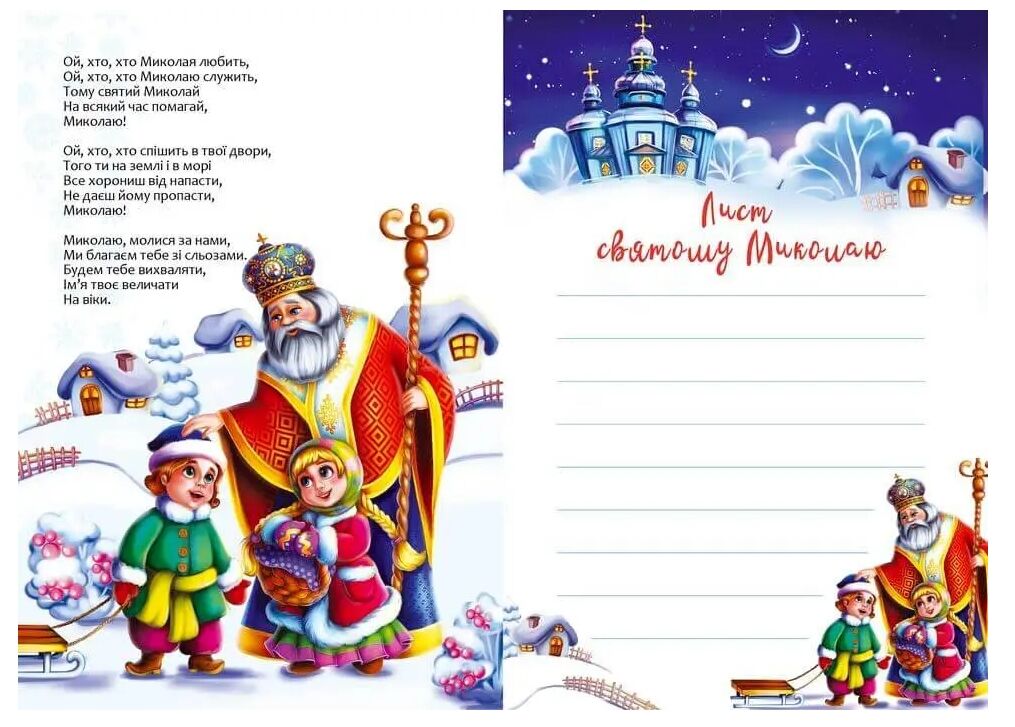 Ой, хто, хто Миколая любить,
Ой, хто, хто Миколаю служить,
Тому святий Миколай
На всякий час помагай,
Миколаю!
Ой, хто, хто спішить в твої двори,
Того ти на землі і в морі
Все хорониш від напасти,
Не даєш йому пропасти,
Миколаю!
Миколаю, молися за нами,
Ми благаєм тебе зі сльозами.
Будем тебе вихваляти,
Ім'я твоє величати
На віки.
Лист
святому Миколаю